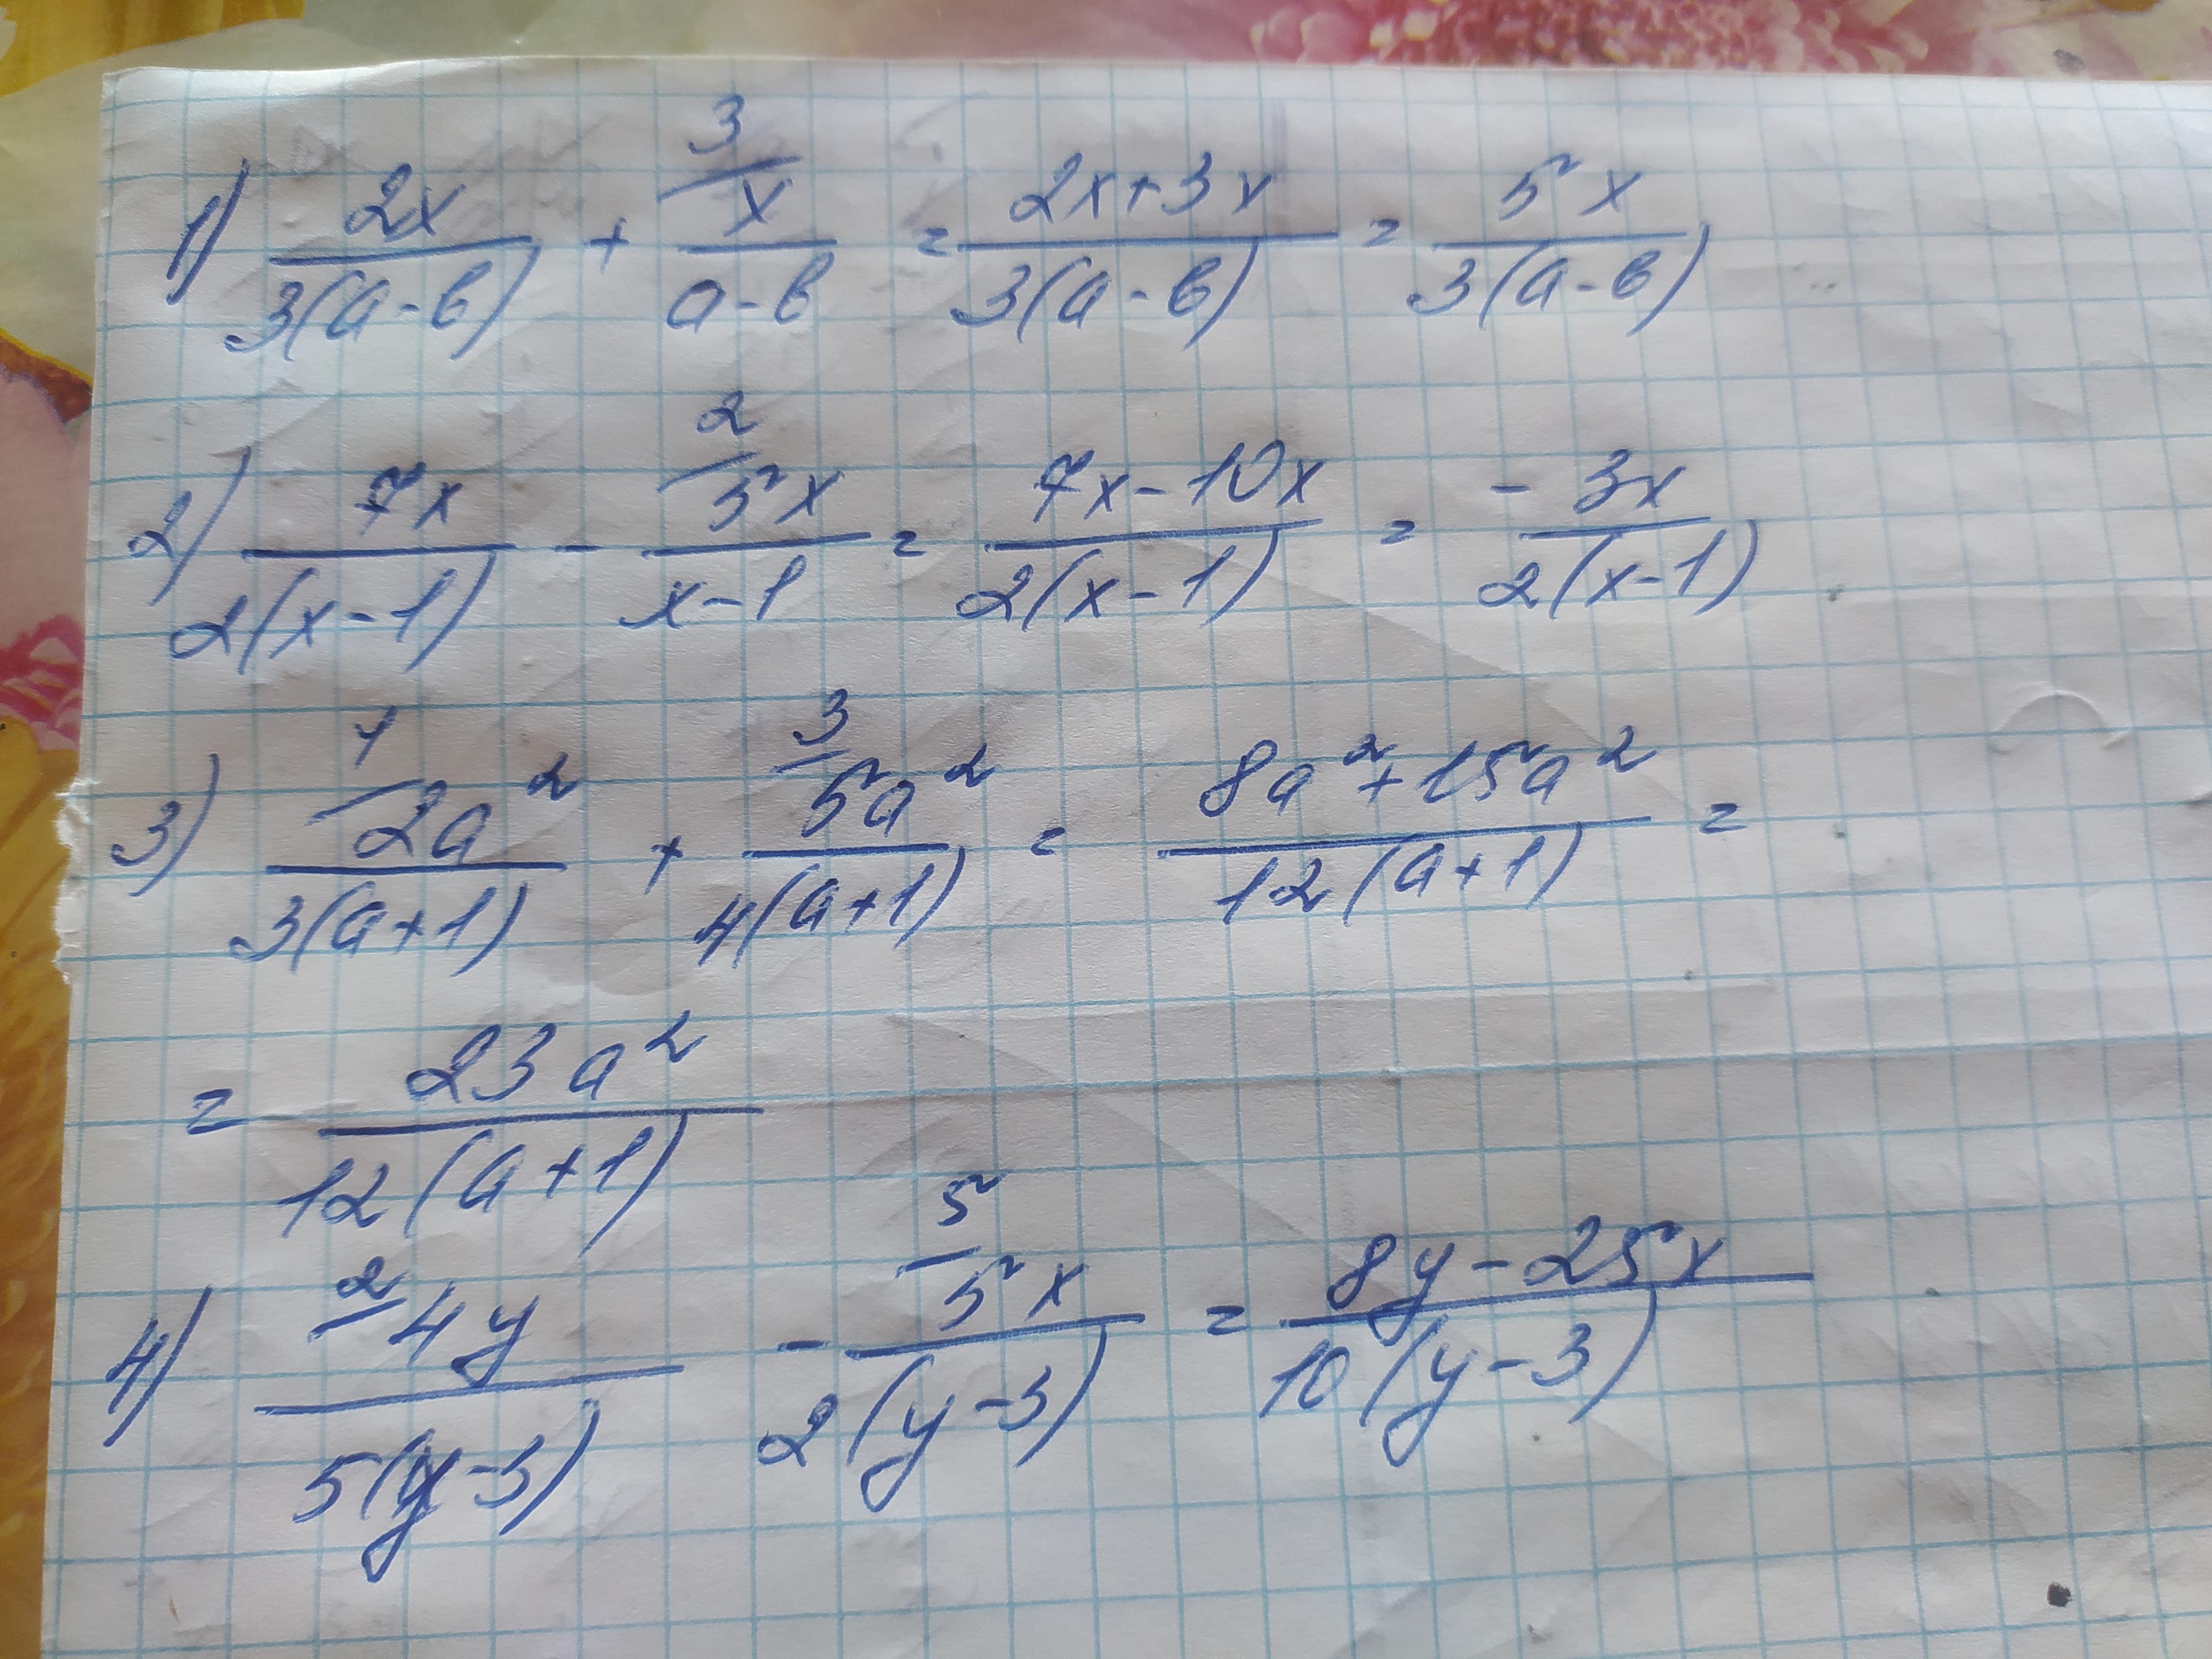 1) 2x / 3(a-b) + 3/ x / a-b = 2x+3x / 3(a-b) = 5x / 3(a-b)
2) 7x / 2(x-1) - 2/ 5x / x-1 = 7x-10x / 2(x-1) = - 3x / 2(x-1)
3) 4/ 2a² / 3(a+1) + 3/ 5a² / 4(a+1) = 8a²+15a² / 12(a+1) =
= 23a² / 12(a+1)
4) 2/ 4y / 5(y-3) - 5/ 5x / 2(y-3) = 8y-25x / 10(y-3)